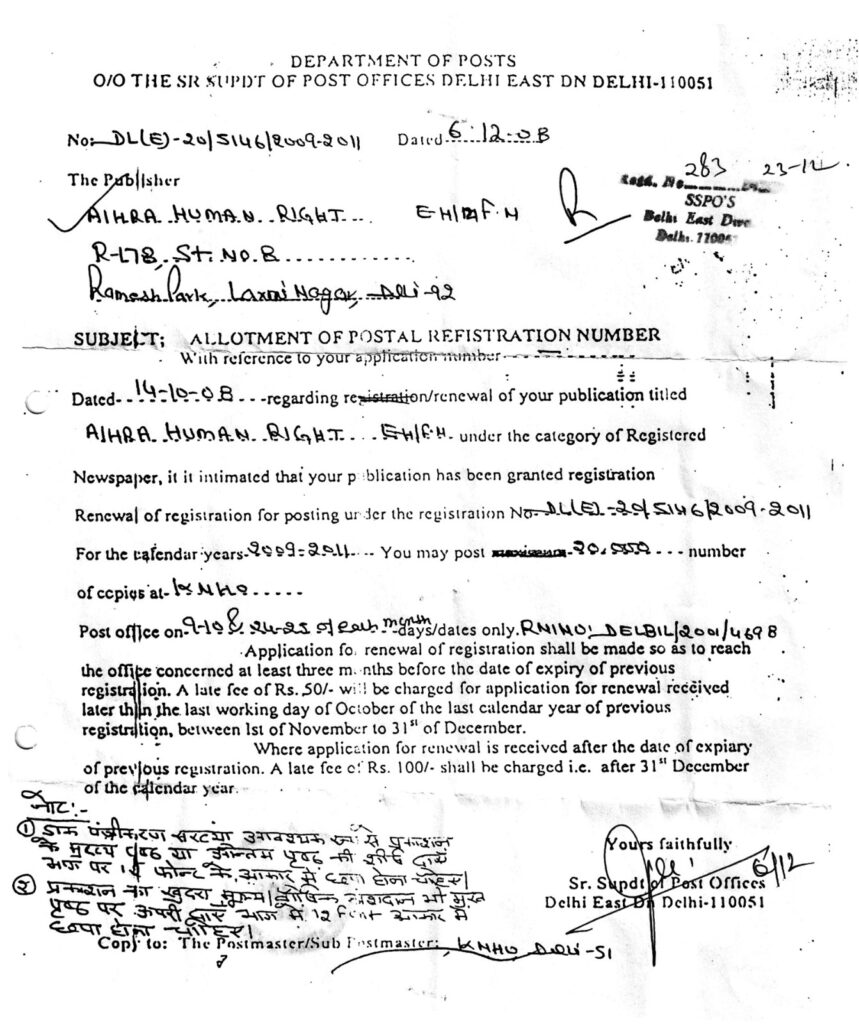 DEPARTMENT OF POSTS
O/O THE SR SUPDT OF POST OFFICES DELHI EAST DN DELHI-110051
No: DL(E)-20/5146/2009-2011 Dated 6.12.08
283 23-12
Regd. No
SSPO'S
Delhi East Dvn
Delhi. 110051
The Publisher
AIHRA HUMAN RIGHT EH/M/F.N
R-178, St. No. 8
Ramesh Park, Laxmi Nagar, Delhi-92
SUBJECT; ALLOTMENT OF POSTAL REFISTRATION NUMBER
With reference to your application number
Dated 14-10-08 regarding registration/renewal of your publication titled
AIHRA HUMAN RIGHT EH/F.N. under the category of Registered
Newspaper, it it intimated that your publication has been granted registration
Renewal of registration for posting under the registration No DL(E)-20/5146/2009-2011
For the calendar years 2009-2011 You may post maximum 20,550 number
of copies at KNHO
Post office on 9-10 & 24-25 of each month days/dates only. RNINO: DELBIL/2001/4698
Application for renewal of registration shall be made so as to reach
the office concerned at least three months before the date of expiry of previous
registration. A late fee of Rs. 50/- will be charged for application for renewal received
later than the last working day of October of the last calendar year of previous
registration, between 1st of November to 31st of December.
Where application for renewal is received after the date of expiary
of previous registration. A late fee of Rs. 100/- shall be charged i.e. after 31st December
of the calendar year.
नोट:-
① डाक पंजीकरण संख्या आवश्यक रूप से प्रकाशन
के मुख्य पृष्ठ या अन्तिम पृष्ठ की शीर्ष दायें
भाग पर 12 फोन्ट के आकार में छपा होना चाहिए।
② प्रकाशन का खुदरा मूल्य/वार्षिक अंशदान भी मुख
पृष्ठ पर ऊपरी दायें भाग में 12 font आकार में
छपा होना चाहिए।
Yours faithfully
6/12
Sr. Supdt of Post Offices
Delhi East Dn Delhi-110051
Copy to: The Postmaster/Sub Postmaster; KNHO Delhi-51